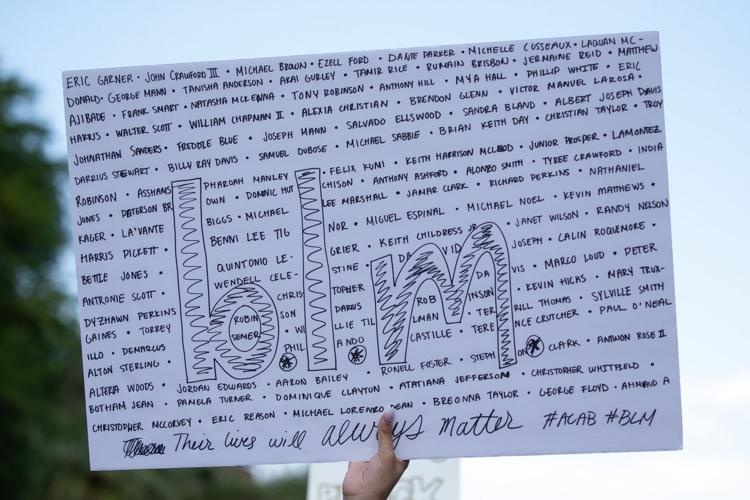 ERIC GARNER • JOHN CRAWFORD III • MICHAEL BROWN • EZELL FORD • DANTE PARKER • MICHELLE CUSSEAUX • LAQUAN MC-
DONALD • GEORGE MANN • TANISHA ANDERSON • AKAI GURLEY • TAMIR RICE • RUMAIN BRISBON • JERMAINE REID • MATTHEW
AJIBADE • FRANK SMART • NATASHA MCKENNA • TONY ROBINSON • ANTHONY HILL • MYA HALL • PHILLIP WHITE • ERIC
HARRIS • WALTER SCOTT • WILLIAM CHAPMAN II • ALEXIA CHRISTIAN • BRENDON GLENN • VICTOR MANUEL LAROSA •
JOHNATHAN SANDERS • FREDDIE BLUE • JOSEPH MANN • SALVADO ELLSWOOD • SANDRA BLAND • ALBERT JOSEPH DAVIS
DARRIUS STEWART • BILLY RAY DAVIS • SAMUEL DUBOSE • MICHAEL SABBIE • BRIAN KEITH DAY • CHRISTIAN TAYLOR • TROY
ROBINSON • ASSHAMS PHAROAH MANLEY • FELIX KUMI • KEITH HARRISON MCLEOD • JUNIOR PROSPER • LAMONTEZ
JONES • PATERSON BR OWN • DOMINIC HUT CHISON • ANTHONY ASHFORD • ALONZO SMITH • TYREE CRAWFORD • INDIA
KAGER • LA'VANTE BIGGS • MICHAEL LEE MARSHALL • JAMAR CLARK • RICHARD PERKINS • NATHANIEL
HARRIS PICKETT • BENNI LEE TIG NOR • MIGUEL ESPINAL • MICHAEL NOEL • KEVIN MATTHEWS •
BETTIE JONES • QUINTONIO LE- GRIER • KEITH CHILDRESS JR • JANET WILSON • RANDY NELSON
ANTRONIE SCOTT • WENDELL CELE- STINE • DA VID JOSEPH • CALIN ROQUEMORE •
DYZHAWN PERKINS • CHRIS TOPHER DA VIS • MARCO LOUD • PETER
GAINES • TORREY ROBIN SON • DARIUS ROB INSON • KEVIN HICKS • MARY TRUX-
ILLO • DEMARCUS SEMER • WI LLIE TIL LMAN • TER RILL THOMAS • SYLVILLE SMITH
ALTON STERLING • PHIL ANDO CASTILLE • TERE NCE CRUTCHER • PAUL O'NEAL
ALTERIA WOODS • JORDAN EDWARDS • AARON BAILEY • RONELL FOSTER • STEPH ON CLARK • ANTWON ROSE II
BOTHAM JEAN • PAMELA TURNER • DOMINIQUE CLAYTON • ATATIANA JEFFERSON • CHRISTOPHER WHITFIELD •
CHRISTOPHER MCCORVEY • ERIC REASON • MICHAEL LORENZO DEAN • BREONNA TAYLOR • GEORGE FLOYD • AHMAUD A
b.l.m.
Their lives will always matter #ACAB #BLM